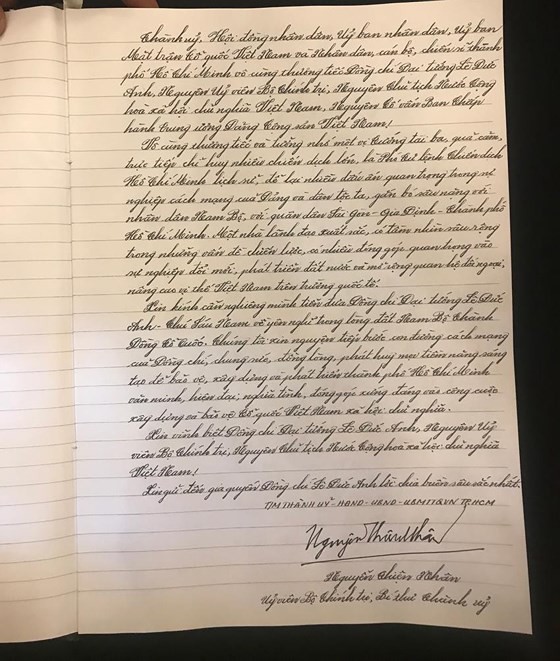 Thành uỷ, Hội đồng nhân dân, Uỷ ban nhân dân, Uỷ ban
Mặt trận Tổ quốc Việt Nam và Nhân dân, cán bộ, chiến sĩ thành
phố Hồ Chí Minh vô cùng thương tiếc Đồng chí Đại tướng Lê Đức
Anh, Nguyên Uỷ viên Bộ Chính trị, Nguyên Chủ tịch Nước Cộng
hoà xã hội chủ nghĩa Việt Nam, Nguyên Cố vấn Ban Chấp
hành Trung ương Đảng Cộng sản Việt Nam!
Vô cùng thương tiếc và tưởng nhớ một vị tướng tài ba, quả cảm,
trực tiếp chỉ huy nhiều chiến dịch lớn, là Phó Tư lệnh Chiến dịch
Hồ Chí Minh lịch sử, để lại nhiều dấu ấn quan trọng trong sự
nghiệp cách mạng của Đảng và dân tộc ta, gắn bó sâu nặng với
nhân dân Nam Bộ, với quân dân Sài Gòn - Gia Định - Thành phố
Hồ Chí Minh. Một nhà lãnh đạo xuất sắc, có tầm nhìn sâu rộng
trong những vấn đề chiến lược, có nhiều đóng góp quan trọng vào
sự nghiệp đổi mới, phát triển đất nước và mở rộng quan hệ đối ngoại,
nâng cao vị thế Việt Nam trên trường quốc tế.
Xin kính cẩn nghiêng mình tiễn đưa Đồng chí Đại tướng Lê Đức
Anh - Chú Sáu Nam về yên nghỉ trong lòng đất Nam Bộ Thành
Đồng Tổ Quốc. Chúng tôi xin nguyện tiếp bước con đường cách mạng
của Đồng chí, chung sức, đồng lòng, phát huy mọi tiềm năng sáng
tạo để bảo vệ, xây dựng và phát triển thành phố Hồ Chí Minh
văn minh, hiện đại, nghĩa tình, đóng góp xứng đáng vào công cuộc
xây dựng và bảo vệ Tổ quốc Việt Nam xã hội chủ nghĩa.
Xin vĩnh biệt Đồng chí Đại tướng Lê Đức Anh, Nguyên Uỷ
viên Bộ Chính trị, Nguyên Chủ tịch Nước Cộng hoà xã hội chủ nghĩa
Việt Nam!
Xin gửi đến gia quyến Đồng chí Lê Đức Anh lời chia buồn sâu sắc nhất.
T/M THÀNH UỶ - HĐND - UBND - UBMTTQVN TP.HCM
Nguyễn Thiện Nhân
Nguyễn Thiện Nhân
Uỷ viên Bộ Chính trị, Bí thư Thành uỷ